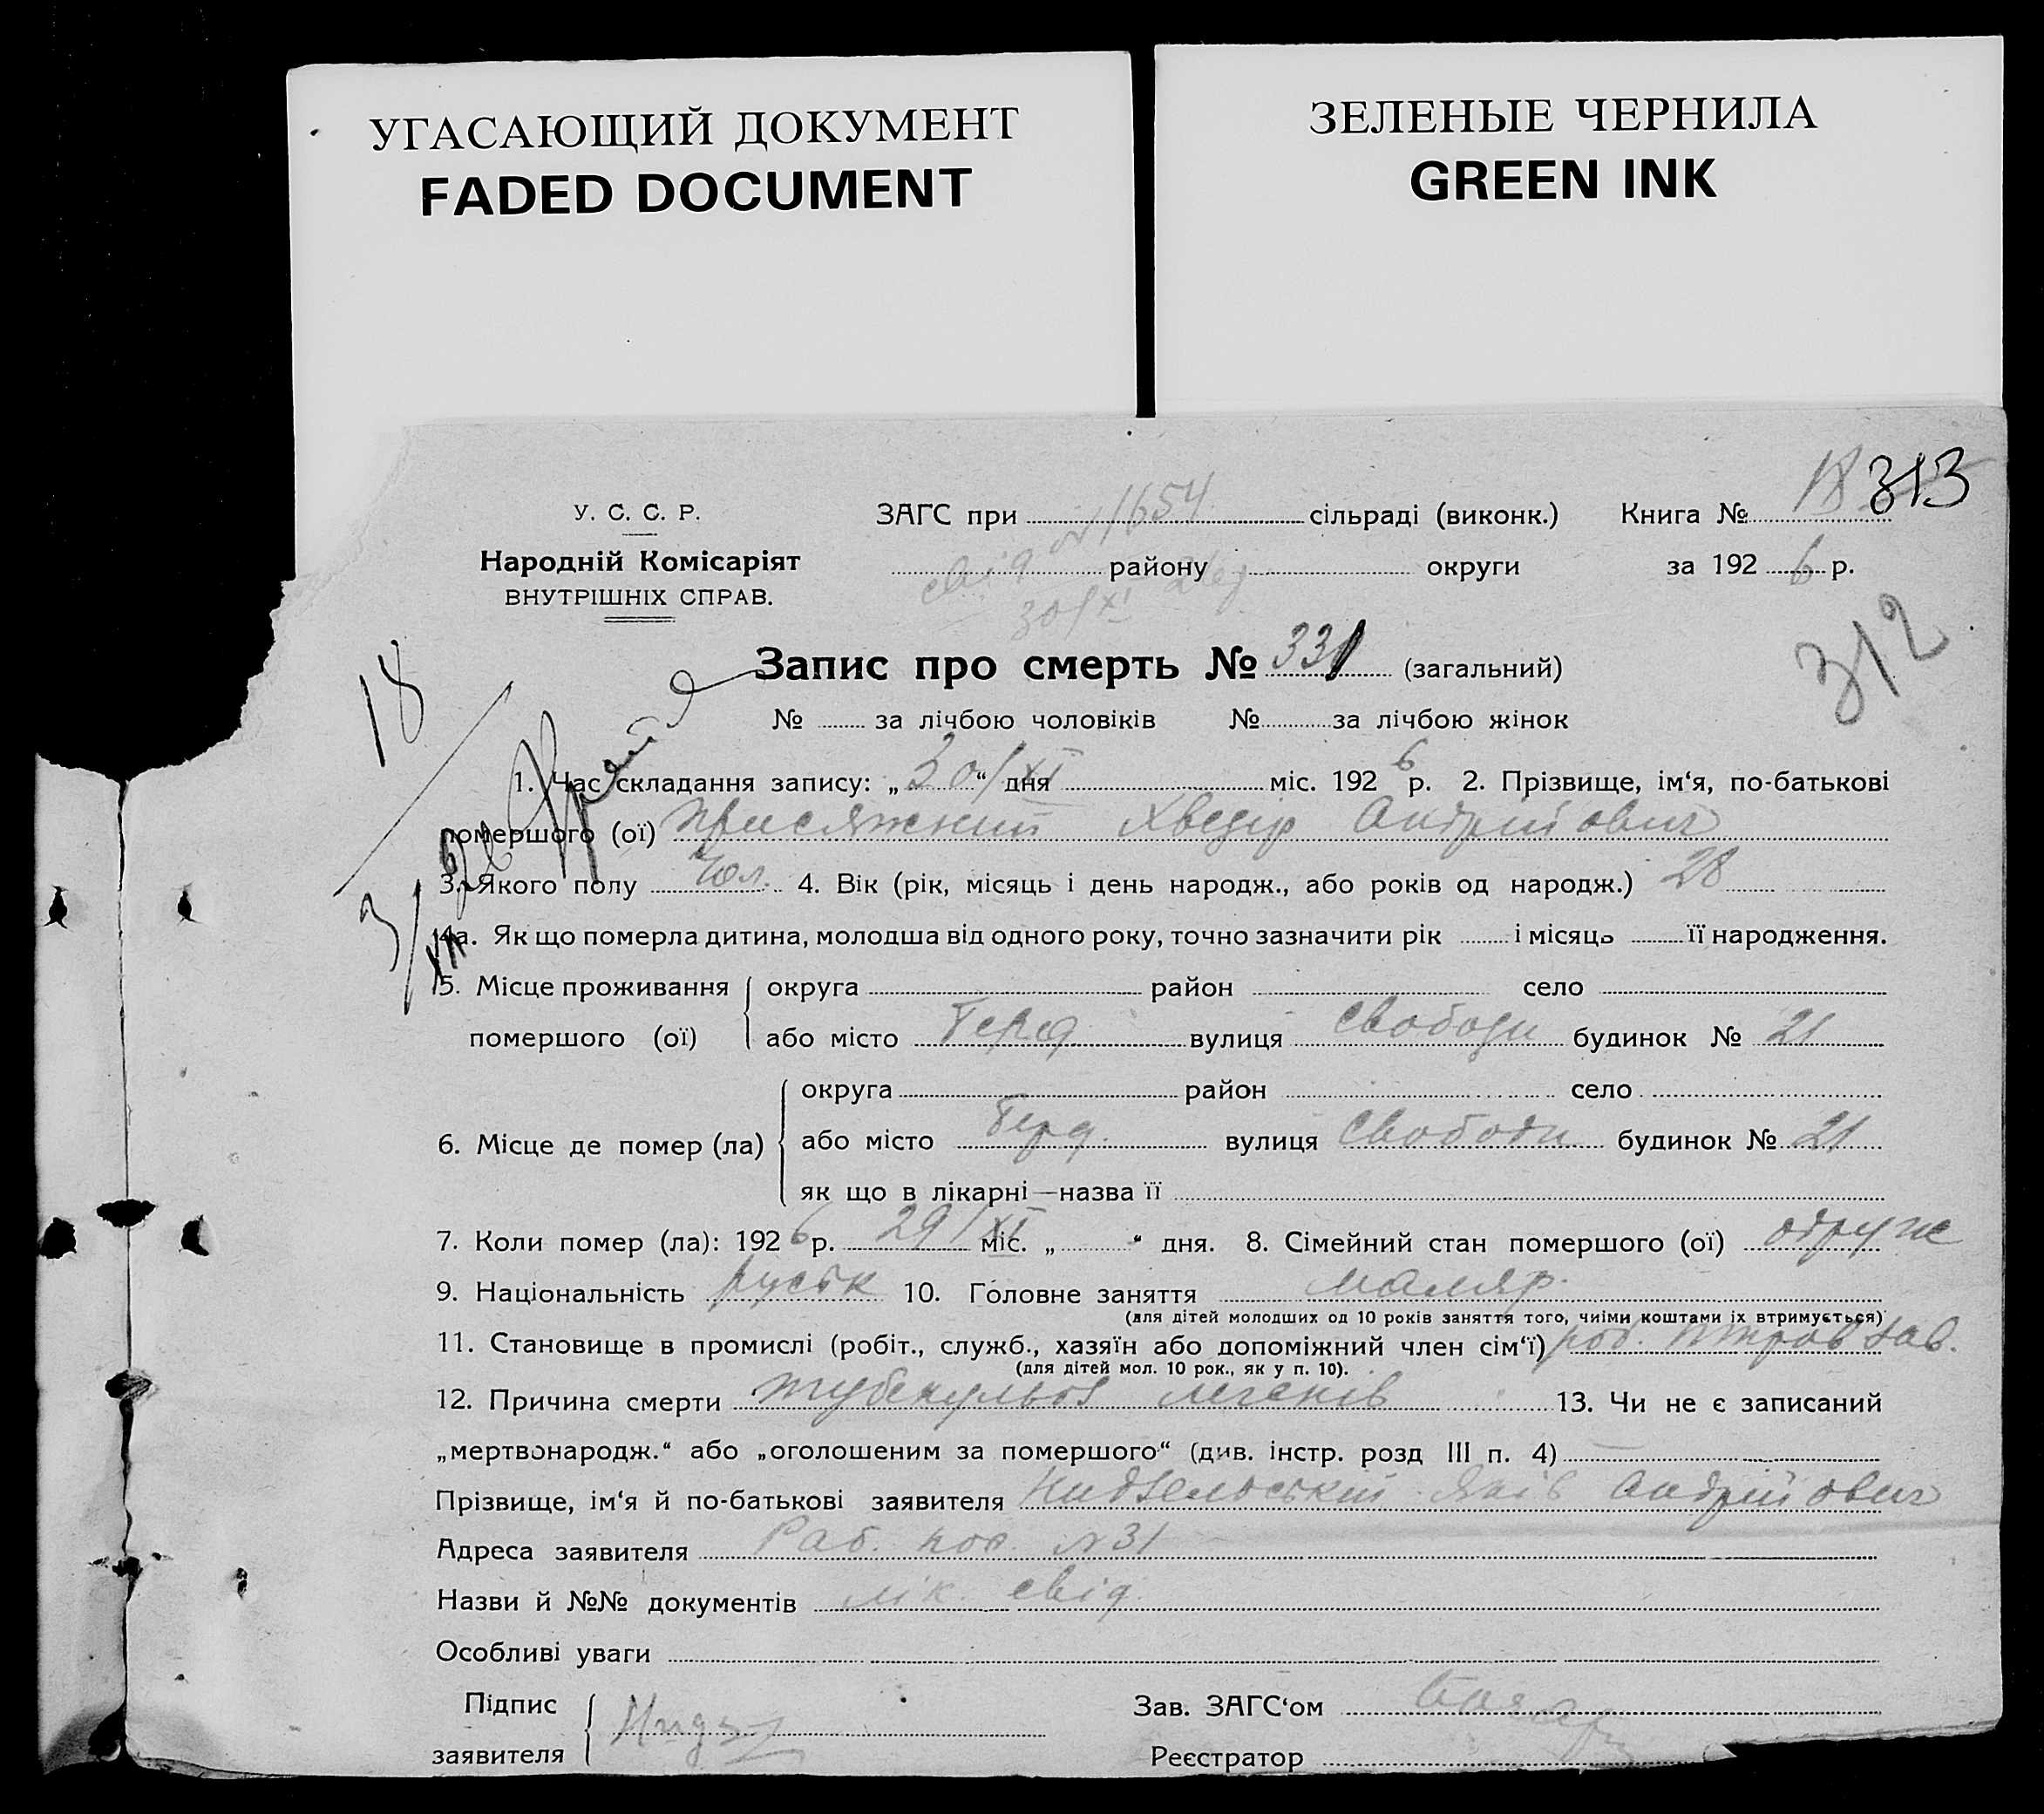 УГАСАЮЩИЙ ДОКУМЕНТ
FADED DOCUMENT
ЗЕЛЕНЫЕ ЧЕРНИЛА
GREEN INK
У. С. С. Р.
Народній Комісаріят
ВНУТРІШНІХ СПРАВ.
ЗАГС при 1654 сільраді (виконк.) Книга № 18 313
свід району округи за 1926 р.
30/XI
312
18
Запис про смерть № 331 (загальний)
№ за лічбою чоловіків № за лічбою жінок
1. Час складання запису: „30/XI“ дня міс. 1926 р. 2. Прізвище, ім‘я, по-батькові
помершого (ої) Присяжний Хведір Андрійович
3. Якого полу Чол. 4. Вік (рік, місяць і день народж., або років од народж.) 28
4а. Як що померла дитина, молодша від одного року, точно зазначити рік і місяць її народження.
5. Місце проживання округа район село
помершого (ої) або місто Берд вулиця Свободи будинок № 21
округа район село
6. Місце де помер (ла) або місто Берд. вулиця Свободи будинок № 21
як що в лікарні—назва її
7. Коли помер (ла): 1926 р. 29/XI міс. „ “ дня. 8. Сімейний стан помершого (ої) одруж
9. Національність руськ 10. Головне заняття маляр.
(для дітей молодших од 10 років заняття того, чиїми коштами їх втримується)
11. Становище в промислі (робіт., служб., хазяїн або допоміжний член сім‘ї) роб. зав.
(для дітей мол. 10 рок., як у п. 10).
12. Причина смерти туберкульоз легенів 13. Чи не є записаний
„мертвонародж.“ або „оголошеним за помершого“ (див. інстр. розд III п. 4)
Прізвище, ім‘я й по-батькові заявителя Яків Андрійович
Адреса заявителя Раб. пос. №31
Назви й №№ документів лік. свід.
Особливі уваги
Підпис
заявителя
Зав. ЗАГС‘ом
Реєстратор